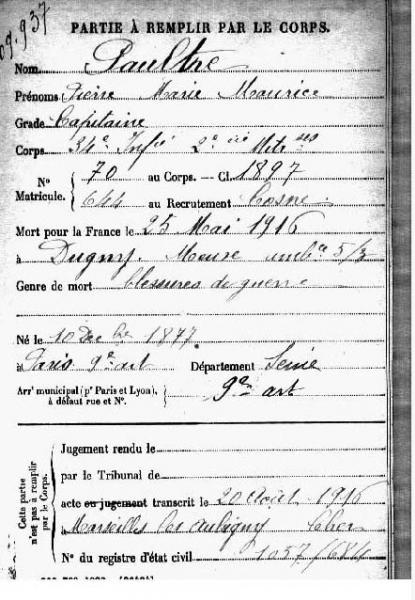 09.937
PARTIE À REMPLIR PAR LE CORPS.
Nom Paultre
Prénoms Pierre Marie Maurice
Grade Capitaine
Corps 34e Infie 2e cie Mitses
No Matricule. 70 au Corps. — Cl. 1897
644 au Recrutement Cosne
Mort pour la France le 25 Mai 1916
à Dugny. Meuse ambce 5/3
Genre de mort blessures de guerre
Né le 10 Décbre 1877
à Paris 9e art Département Seine
Arrt municipal (pr Paris et Lyon), à défaut rue et No. 9e art
Cette partie n'est pas à remplir par le Corps.
Jugement rendu le
par le Tribunal de
acte ou jugement transcrit le 20 Août 1916
Marseilles les Aubigny Cher
No du registre d'état civil 1057/684